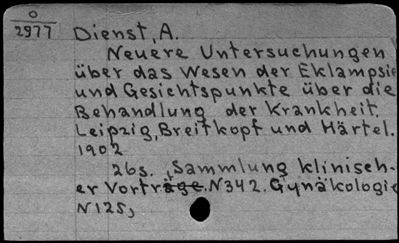 O
2977
Dienst, A.
Neuere Untersuchungen
über das Wesen der Eklampsie
und Gesichtspunkte über die
Behandlung der Krankheit.
Leipzig, Breitkopf und Härtel.
1902
26s. (Sammlung klinisch-
er Vorträge. N342. Gynäkologie
N125)